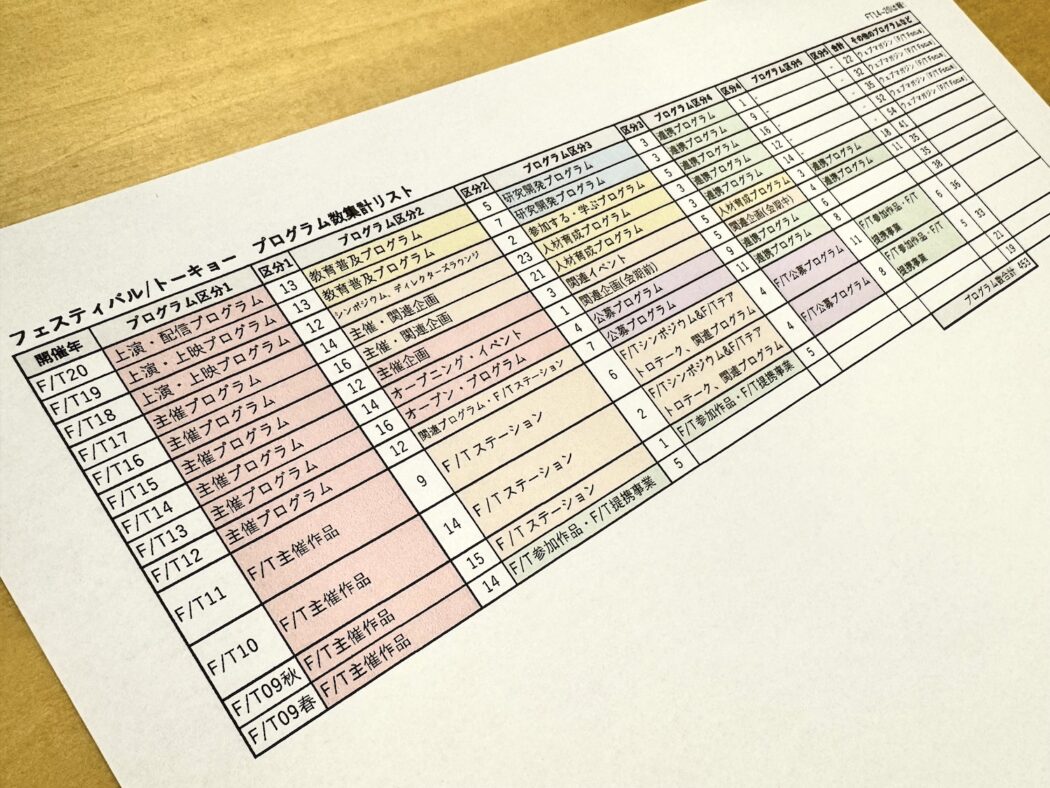 FT14-20(仕様)
フェスティバル/トーキョー プログラム数集計リスト
開催年 プログラム区分1 区分1 プログラム区分2 区分2 プログラム区分3 区分3 プログラム区分4 区分4 プログラム区分5 区分5 合計 その他のプログラムなど
F/T20 上演・配信プログラム 13 教育普及プログラム 5 研究開発プログラム 3 連携プログラム 1 - - 22 ウェブマガジン (F/T Focus)
F/T19 上演・上映プログラム 13 教育普及プログラム 7 研究開発プログラム 3 連携プログラム 9 - - 32 ウェブマガジン (F/T Focus)
F/T18 上演・上映プログラム 12 シンポジウム、ディレクターズラウンジ 2 参加する・学ぶプログラム 5 連携プログラム 16 - - 35 ウェブマガジン (F/T Focus)
F/T17 主催プログラム 14 主催・関連企画 23 人材育成プログラム 3 連携プログラム 12 - - 52 ウェブマガジン (F/T Focus)
F/T16 主催プログラム 16 主催・関連企画 21 人材育成プログラム 3 連携プログラム 14 - - 54 ウェブマガジン (F/T Focus)
F/T15 主催プログラム 12 主催企画 3 関連イベント 5 人材育成プログラム 3 連携プログラム 18 41
F/T14 主催プログラム 14 オープニング・イベント 1 関連企画(会期前) 5 関連企画(会期中) 4 連携プログラム 11 35
F/T13 主催プログラム 16 オープン・プログラム 4 公募プログラム 9 連携プログラム 6 35
F/T12 主催プログラム 12 関連プログラム・F/Tステーション 7 公募プログラム 11 連携プログラム 8 38
F/T11 F/T主催作品 9 F/Tステーション 6 F/Tシンポジウム&F/Tテア
トロテーク、関連プログラム 4 F/T公募プログラム 11 F/T参加作品・F/T
提携事業 6 36
F/T10 F/T主催作品 14 F/Tステーション 2 F/Tシンポジウム&F/Tテア
トロテーク、関連プログラム 4 F/T公募プログラム 8 F/T参加作品・F/T
提携事業 5 33
F/T09秋 F/T主催作品 15 F/Tステーション 1 F/T参加作品・F/T提携事業 5 21
F/T09春 F/T主催作品 14 F/T参加作品・F/T提携事業 5 19
プログラム数合計 453